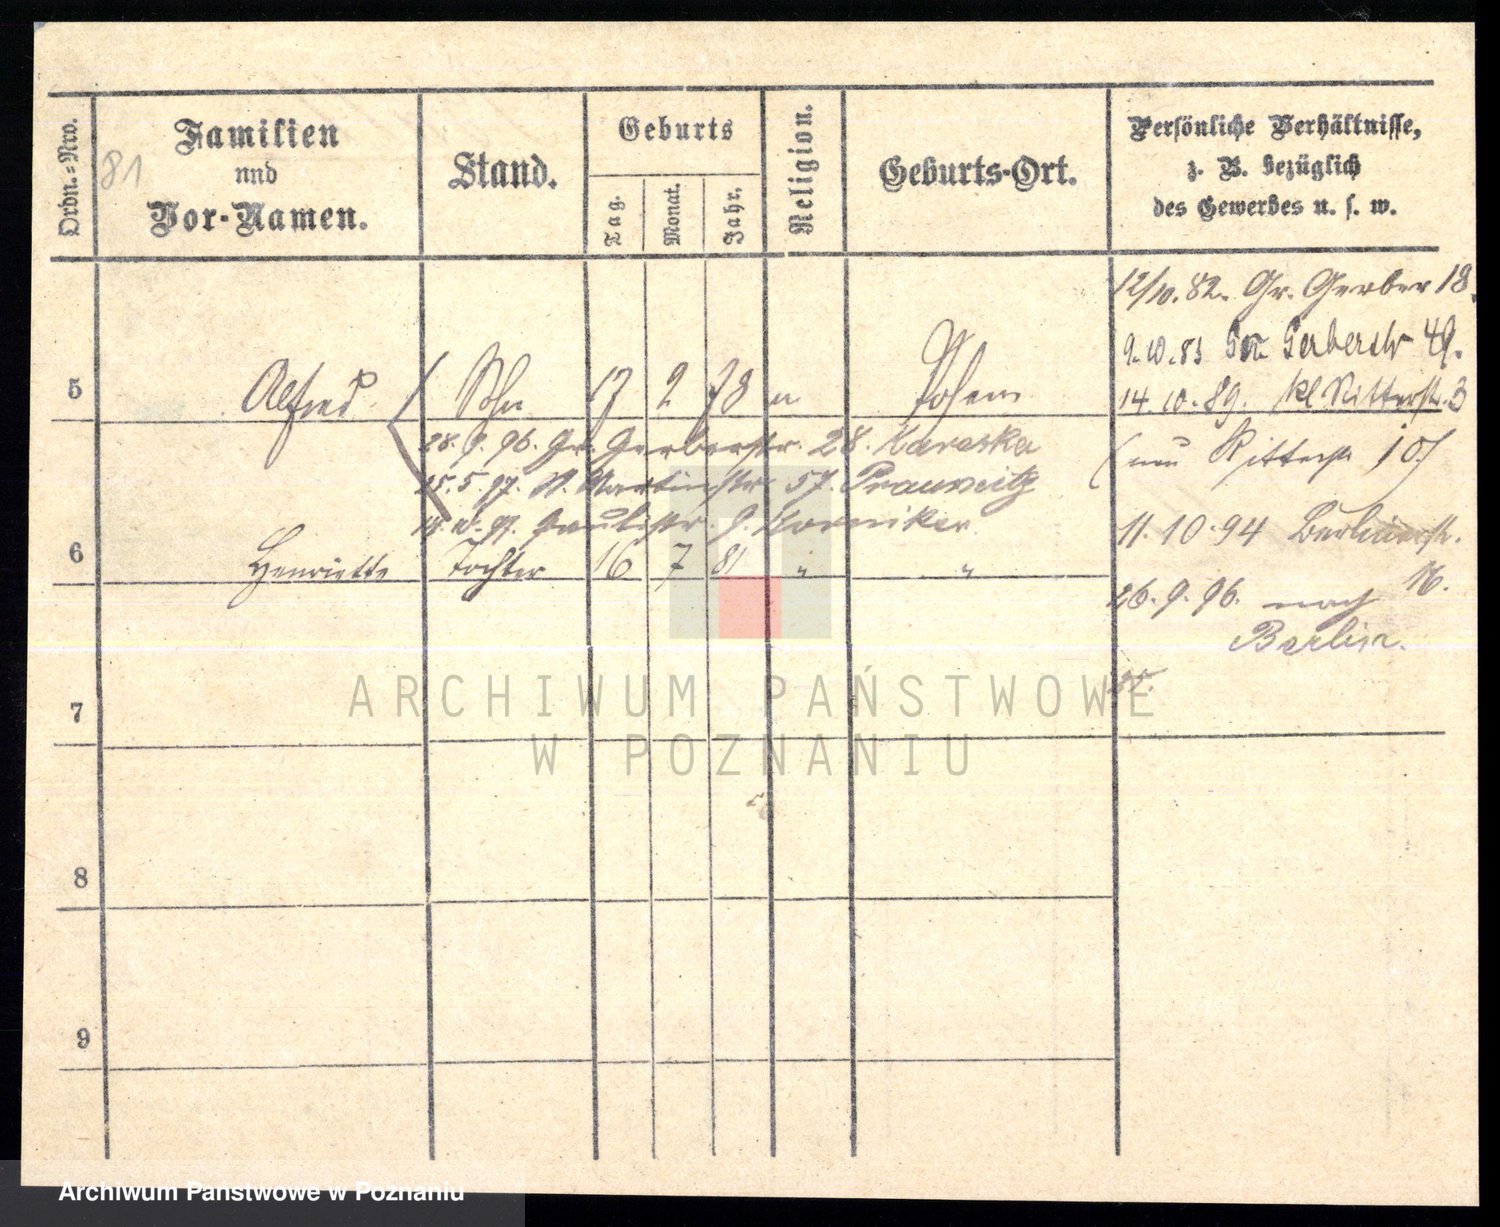 Ordn.-Nro.
81
Familien
und
Vor-Namen.
Stand.
Geburts
Tag.
Monat.
Jahr.
Religion.
Geburts-Ort.
Persönliche Verhältnisse,
z. B. bezüglich
des Gewerbes u. s. w.
12/10. 82. Gr. Gerber 18.
9.10.83 Gr. Gerberstr 49.
5 Alfred Sohn 17 2 78 " Posen
14.10.89. Kl Ritterstr. 3
28.9.96. Gr. Gerberstr. 28. Kareska
(nun Ritterstr 10)
25.5.97. St. Martinstr 57. Prausnitz
Paulistr. 9. Korniker
11.10.94 Berlinerstr.
16.
6 Henriette Tochter 16 7 81 " "
26.9.96. nach
Berlin.
7
8
9
ARCHIWUM PAŃSTWOWE
W POZNANIU
Archiwum Państwowe w Poznaniu